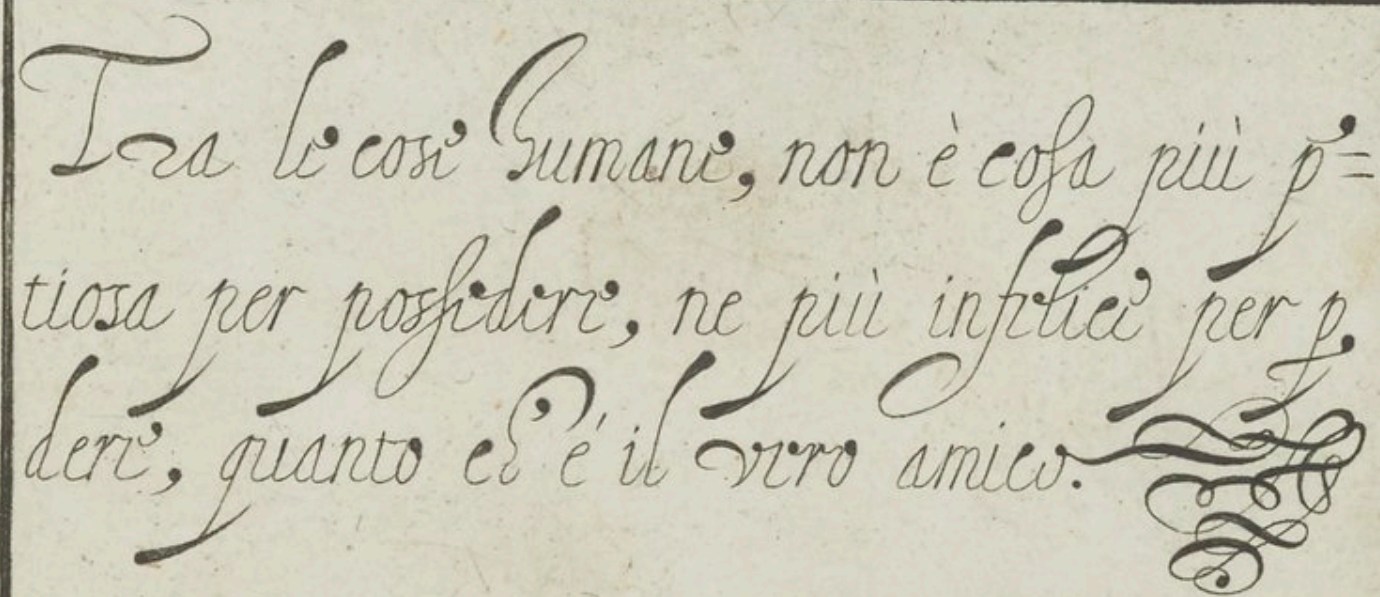 Tra le cose humane, non è cosa più p̃=
tiosa per possedere, ne più infelice per p̱
dere, quanto ch' é il vero amico.